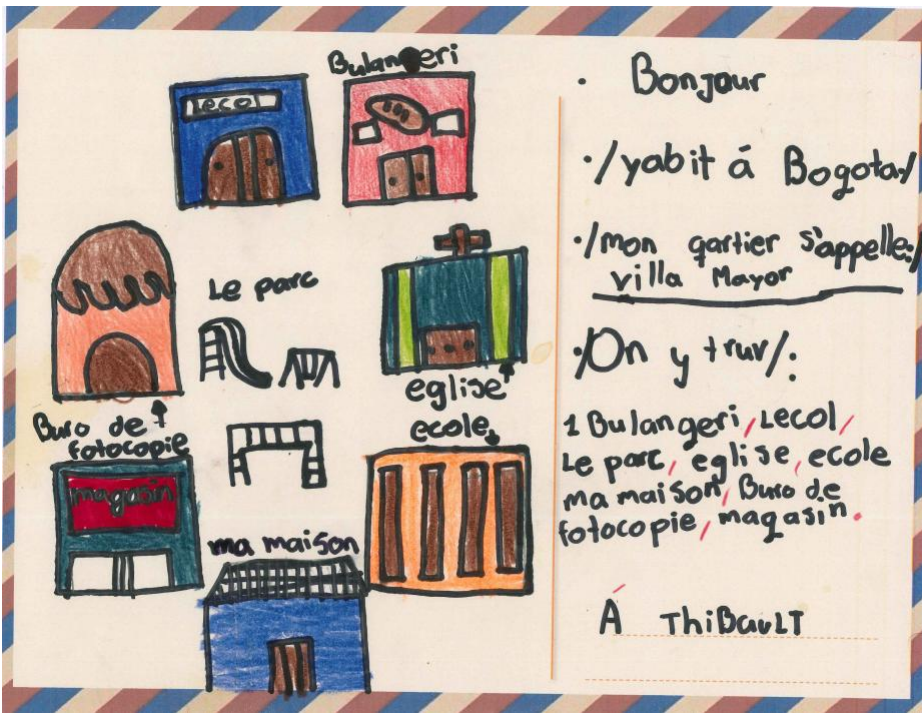 Bulangeri
Lecol
Le parc
eglise
ecole
Buro de
fotocopie
magasin
ma maison
. Bonjour
./yabit á Bogota./
./mon qartier s'appelle:/
villa Mayor
./On y truv/.
1 Bulangeri, Lecol,
Le parc, eglise, ecole
ma maison, Buro de
fotocopie, magasin.
Á THiBauLT